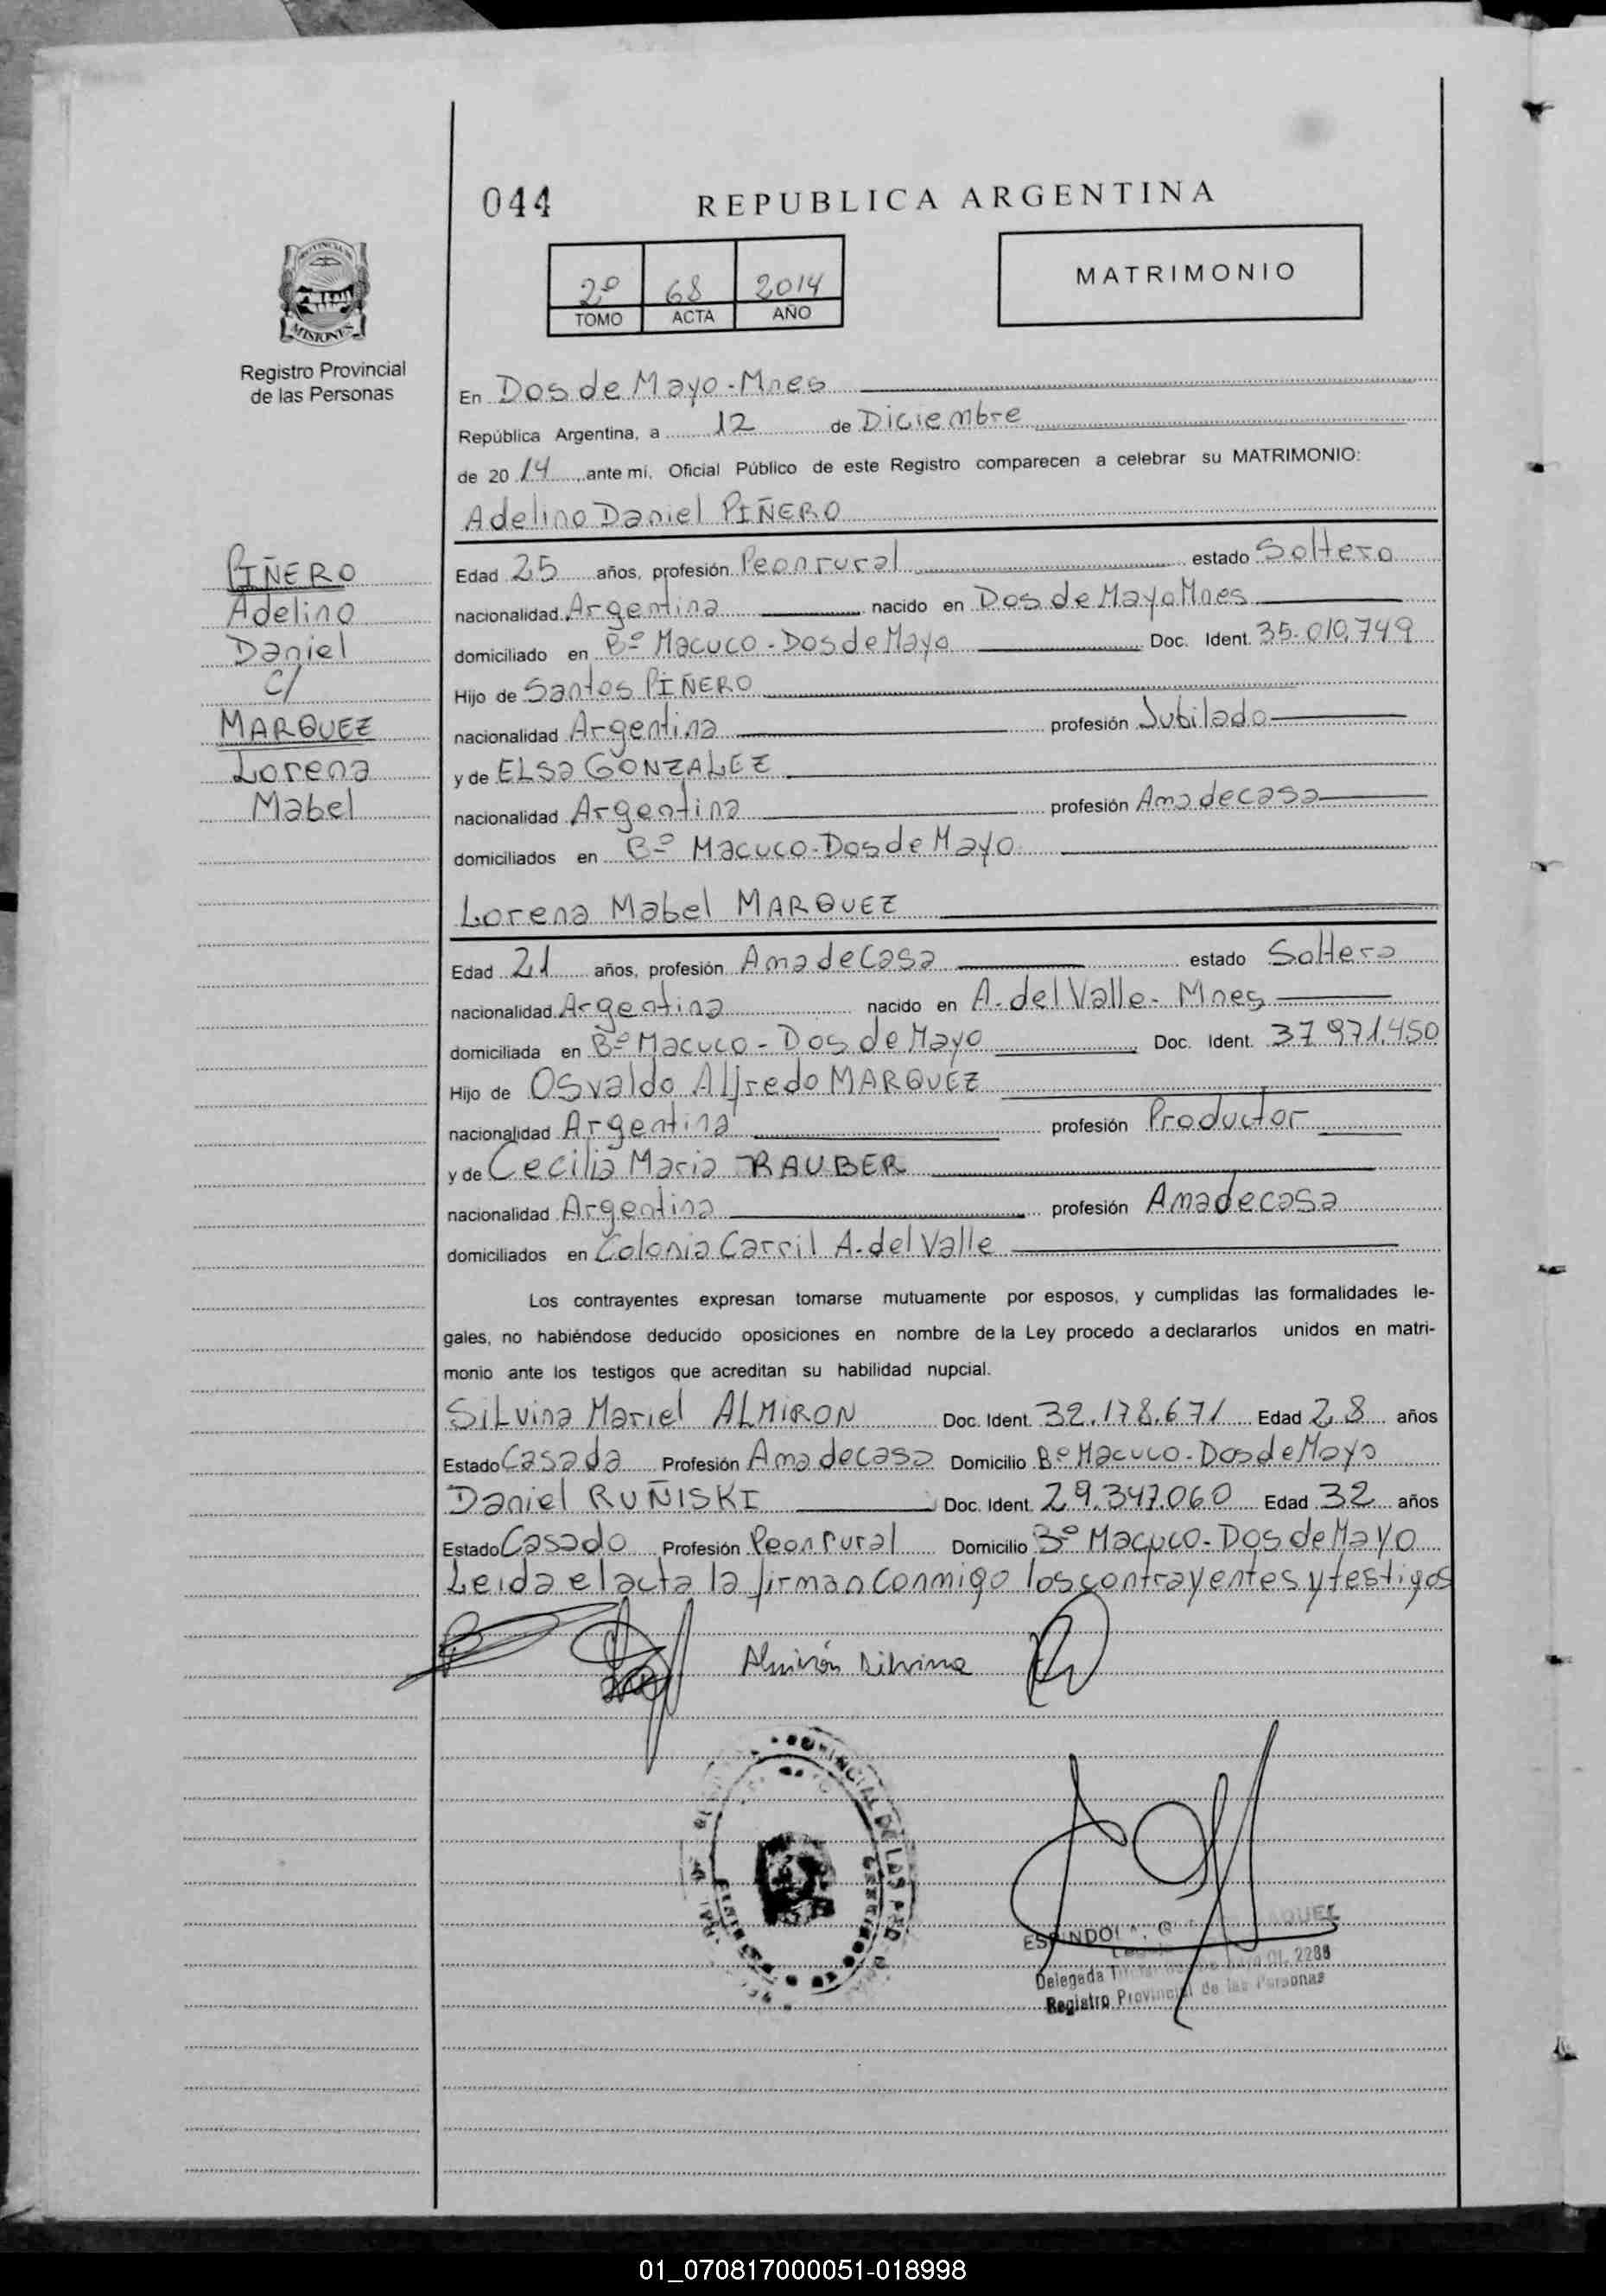 044
REPUBLICA ARGENTINA
PROVINCIA DE
MISIONES
2º 68 2014
TOMO ACTA AÑO
MATRIMONIO
Registro Provincial
de las Personas
En Dos de Mayo - Mnes
República Argentina, a 12 de Diciembre
de 20 14 ante mi, Oficial Público de este Registro comparecen a celebrar su MATRIMONIO:
Adelino Daniel PIÑERO
PIÑERO
Adelino
Daniel
c/
MARQUEZ
Lorena
Mabel
Edad 25 años, profesión Peon rural estado Soltero
nacionalidad Argentina nacido en Dos de Mayo Mnes
domiciliado en Bº Macuco - Dos de Mayo Doc. Ident. 35.010.749
Hijo de Santos PIÑERO
nacionalidad Argentina profesión Jubilado
y de ELSa GONZALEZ
nacionalidad Argentina profesión Ama de casa
domiciliados en Bº Macuco - Dos de Mayo
Lorena Mabel MARQUEZ
Edad 21 años, profesión Ama de Casa estado Soltera
nacionalidad Argentina nacido en A. del Valle - Mnes
domiciliada en Bº Macuco - Dos de Mayo Doc. Ident. 37.971.450
Hijo de Osvaldo Alfredo MARQUEZ
nacionalidad Argentina profesión Productor
y de Cecilia Maria RAUBER
nacionalidad Argentina profesión Ama de casa
domiciliados en Colonia Carril A. del Valle
Los contrayentes expresan tomarse mutuamente por esposos, y cumplidas las formalidades le-
gales, no habiéndose deducido oposiciones en nombre de la Ley procedo a declararlos unidos en matri-
monio ante los testigos que acreditan su habilidad nupcial.
SiLvina Mariel ALMIRON Doc. Ident. 32.178.671 Edad 28 años
Estado Casada Profesión Ama de casa Domicilio Bº Macuco - Dos de Mayo
Daniel RUÑISKI Doc. Ident. 29.347.060 Edad 32 años
Estado Casado Profesión Peon rural Domicilio Bº Macuco - Dos de Mayo
Leida el acta la firman conmigo los contrayentes y testigos
Almirón Silvina
PROVINCIAL DE LAS
Delegada 2288
Registro Provincial de las Personas
01_070817000051-018998